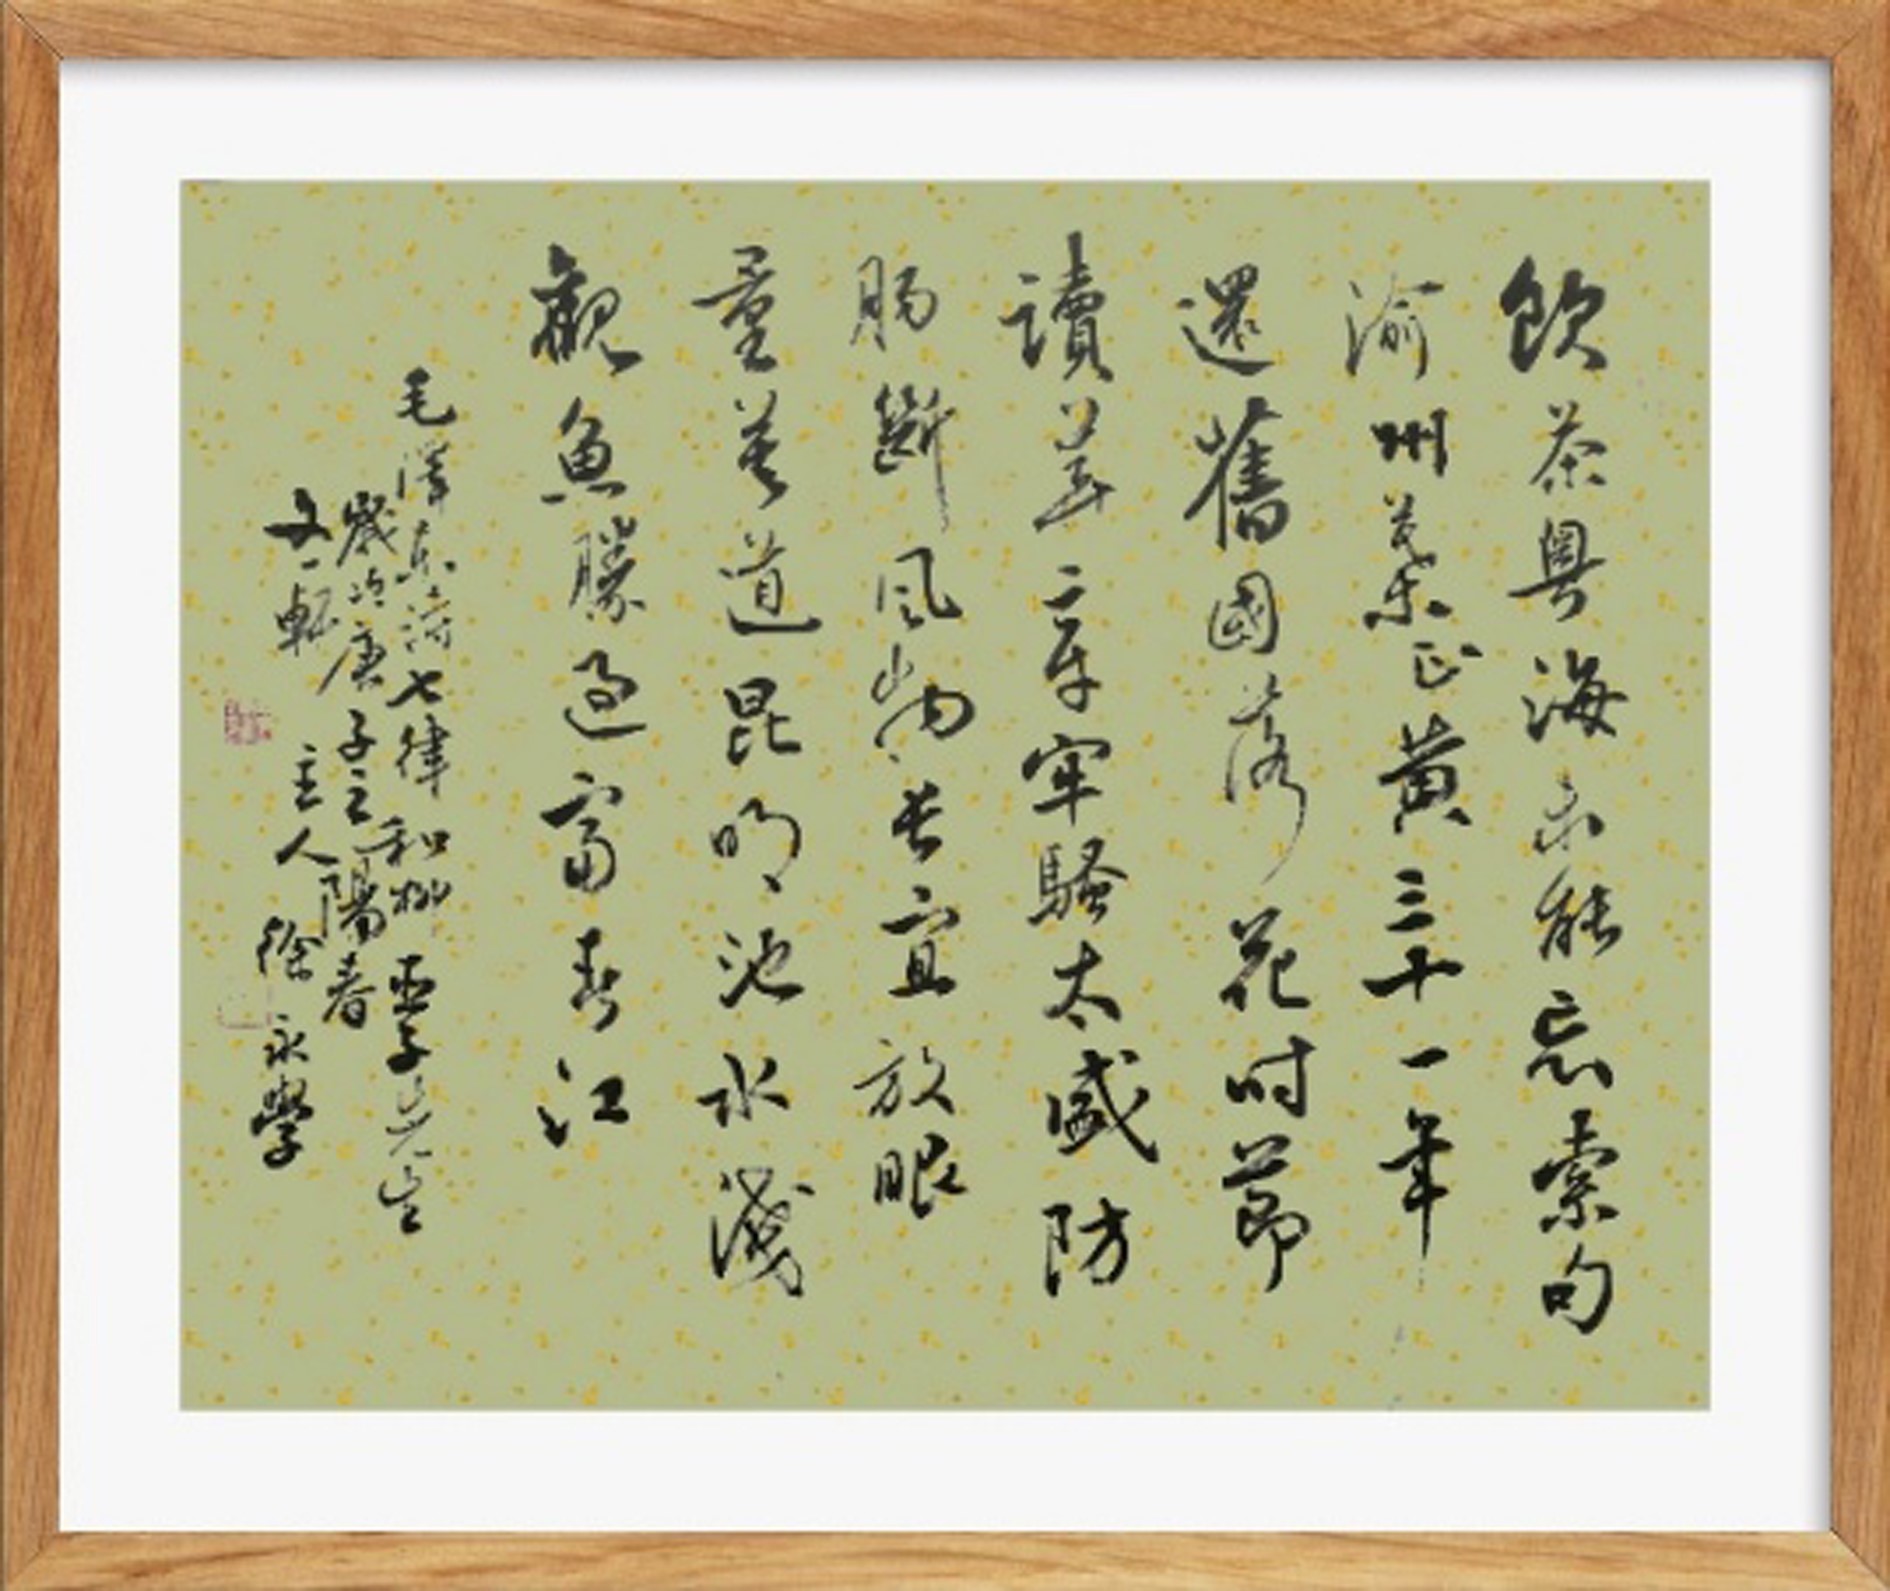 飲茶粵海未能忘索句
渝州葉正黃三十一年
還舊國落花时節
讀華章牢騷太盛防
肠斷風物長宜放眼
量莫道昆明池水淺
觀魚勝過富春江
毛澤東詩七律和柳亞子先生
歲次庚子之陽春
文一軒主人徐永學